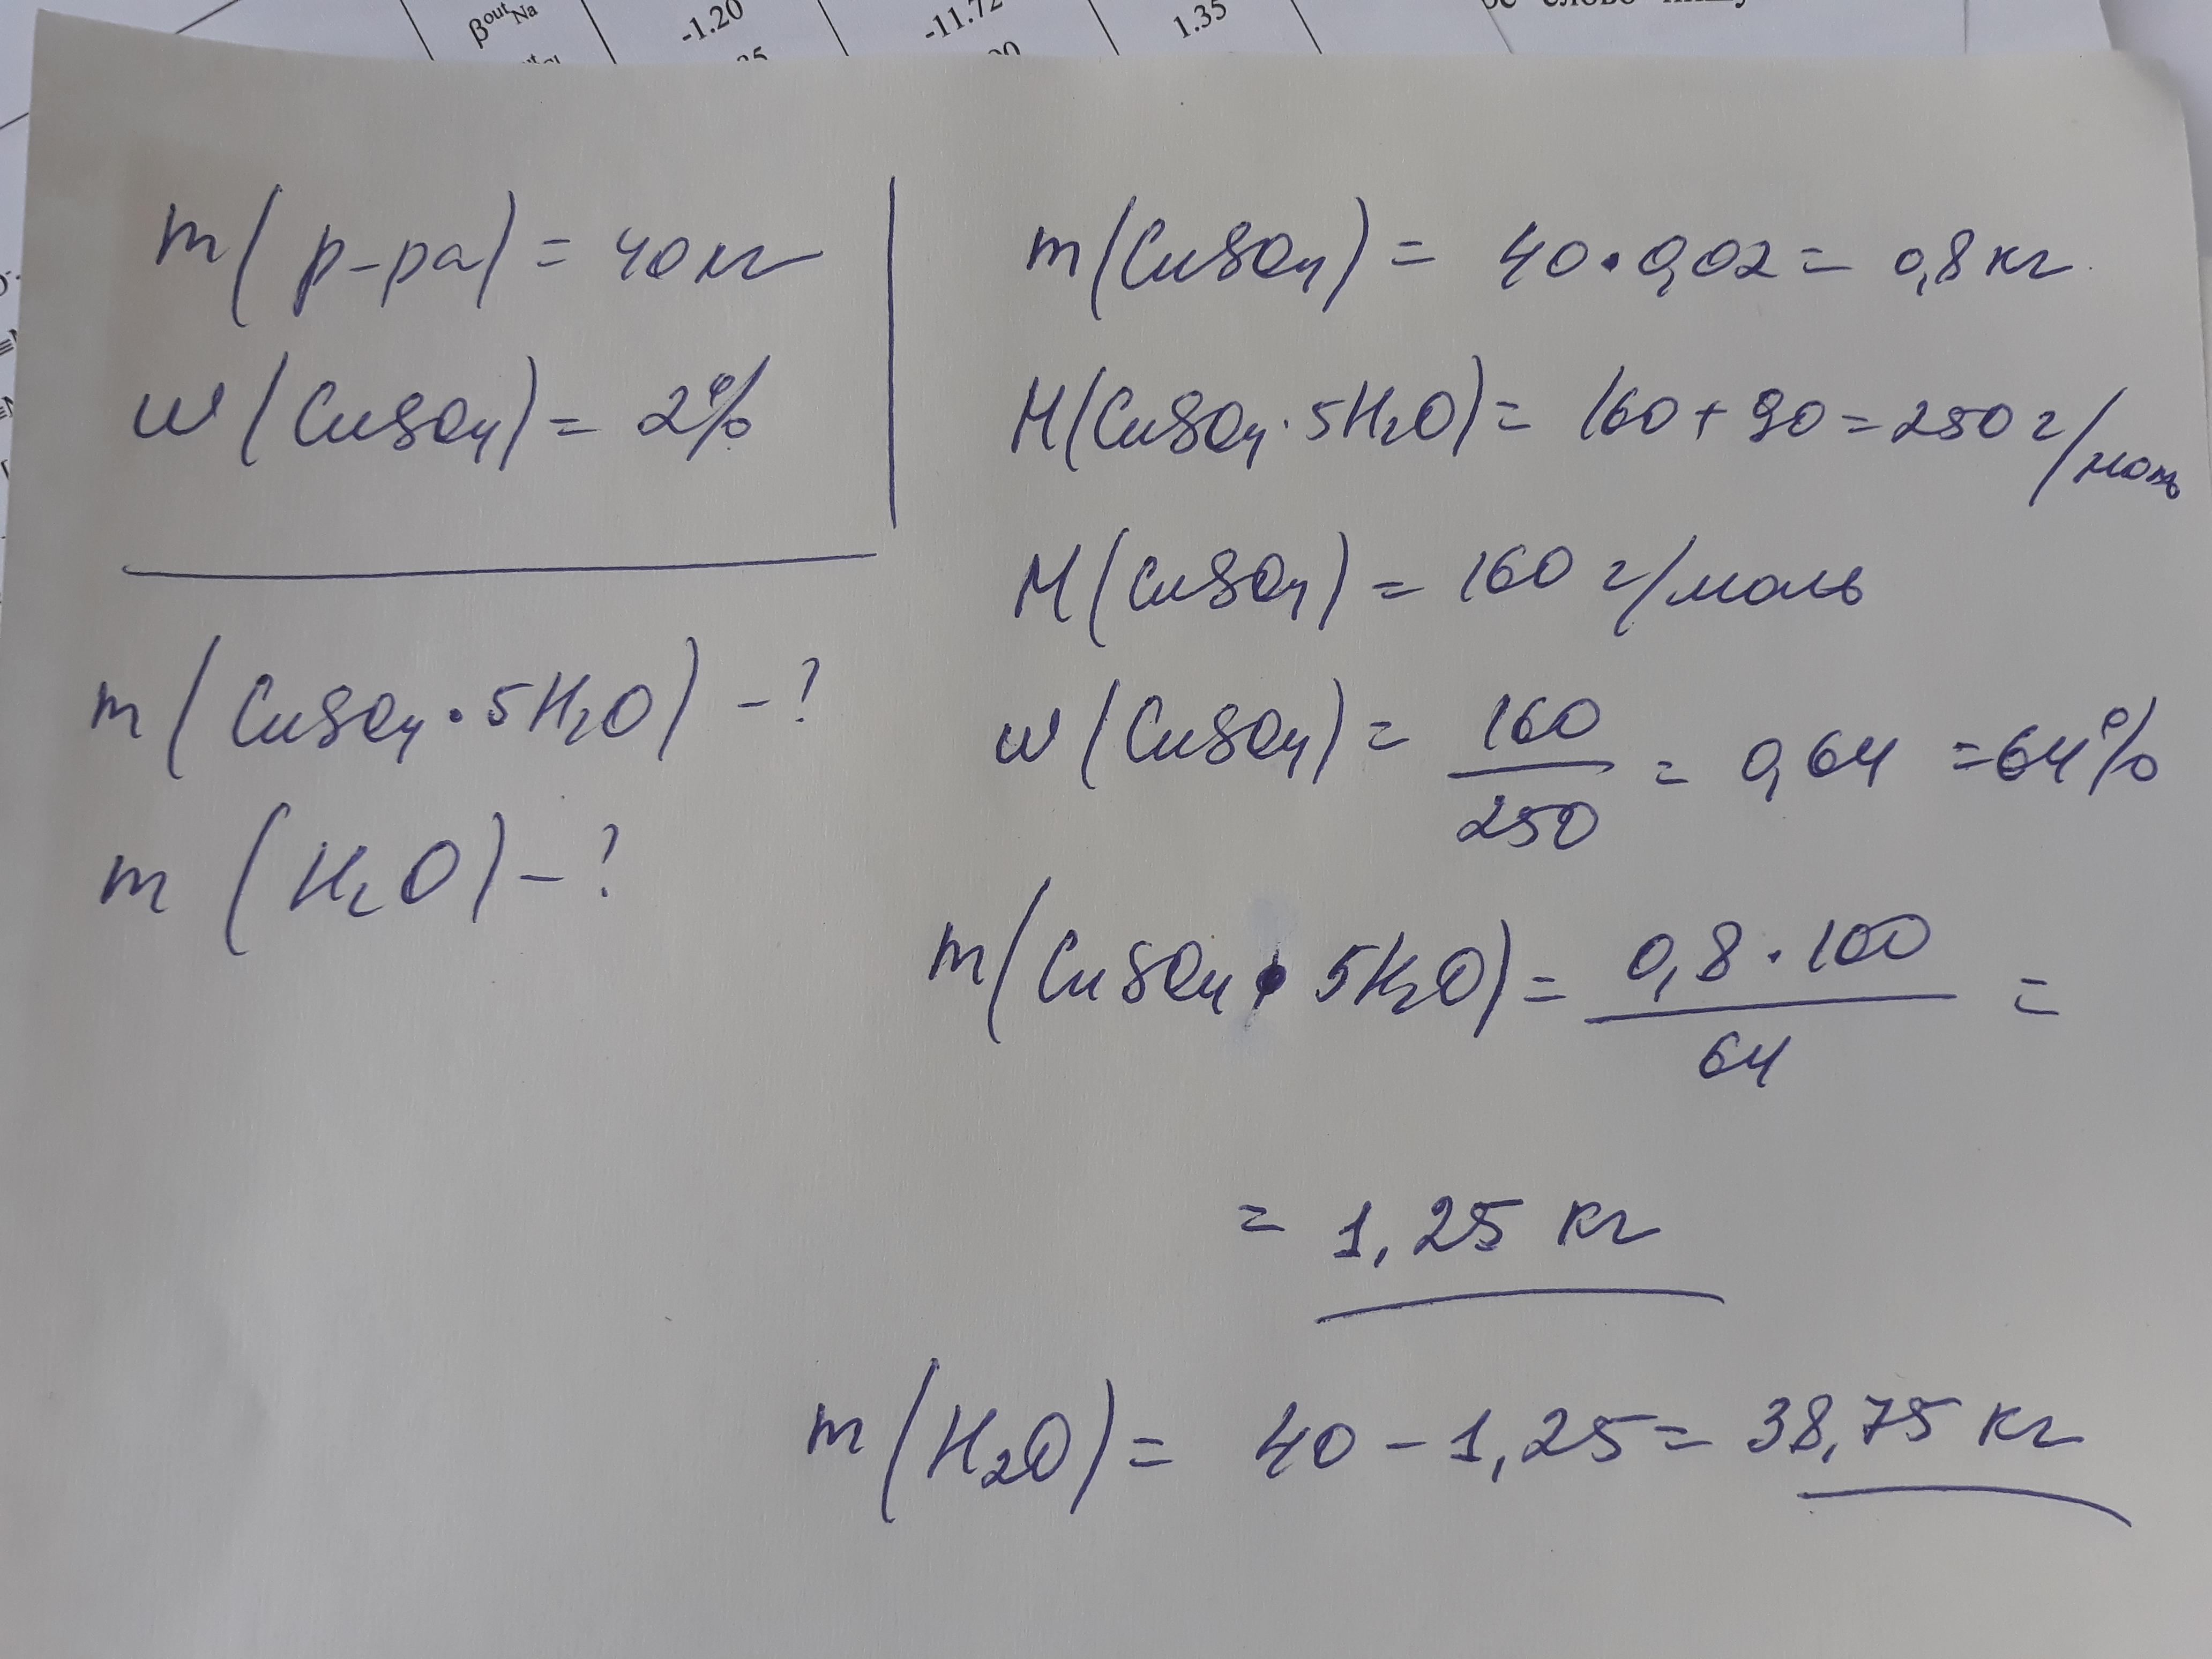 βᵒᵘᵗNa -1.20 -11.72 1.35
m(р-ра) = 40 кг
w(CuSO₄) = 2%
m(CuSO₄·5H₂O) - ?
m(H₂O) - ?
m(CuSO₄) = 40·0,02 = 0,8 кг
M(CuSO₄·5H₂O) = 160+90 = 250 г/моль
M(CuSO₄) = 160 г/моль
w(CuSO₄) = 160/250 = 0,64 = 64%
m(CuSO₄·5H₂O) = 0,8·100/64 =
= 1,25 кг
m(H₂O) = 40 - 1,25 = 38,75 кг